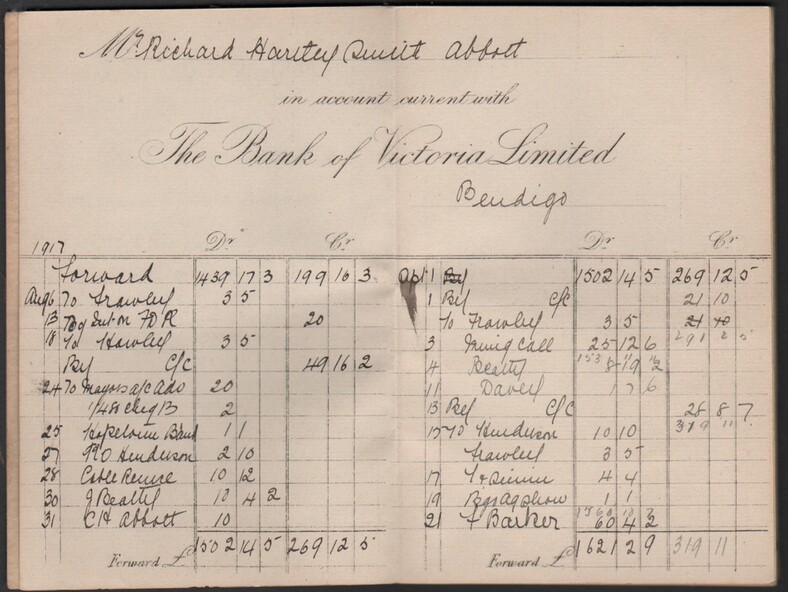 Mr Richard Hartley Smith Abbott
in account current with
The Bank of Victoria Limited
Bendigo
1917 Dr Cr
Forward 1439 17 3 199 16 3
Aug 6 To Frawley 3 5
13 By Int on FD R 20
18 To Frawley 3 5
By C/C 49 16 2
24 To Mayors a/c Ado 20
1/48 cheq B 2
25 Band 1 1
27 Henderson 2 10
28 Cable 10 12
30 J Beatty 10 4 2
31 C H Abbott 10
Forward £ 1502 14 5 269 12 5
Dr Cr
1 By 1502 14 5 269 12 5
1 By C/C 21 10
To Frawley 3 5 21 10
3 Mining Call 25 12 6 291 2 5
4 Beatty 8 19 2
11 Davey 1 7 6
13 By C/C 28 8 7
15 To Henderson 10 10 319 11
Frawley 3 5
17 4 4
19 Bgo Ag Show 1 1
21 F Barker 60 4 2
Forward £ 1621 2 9 319 11